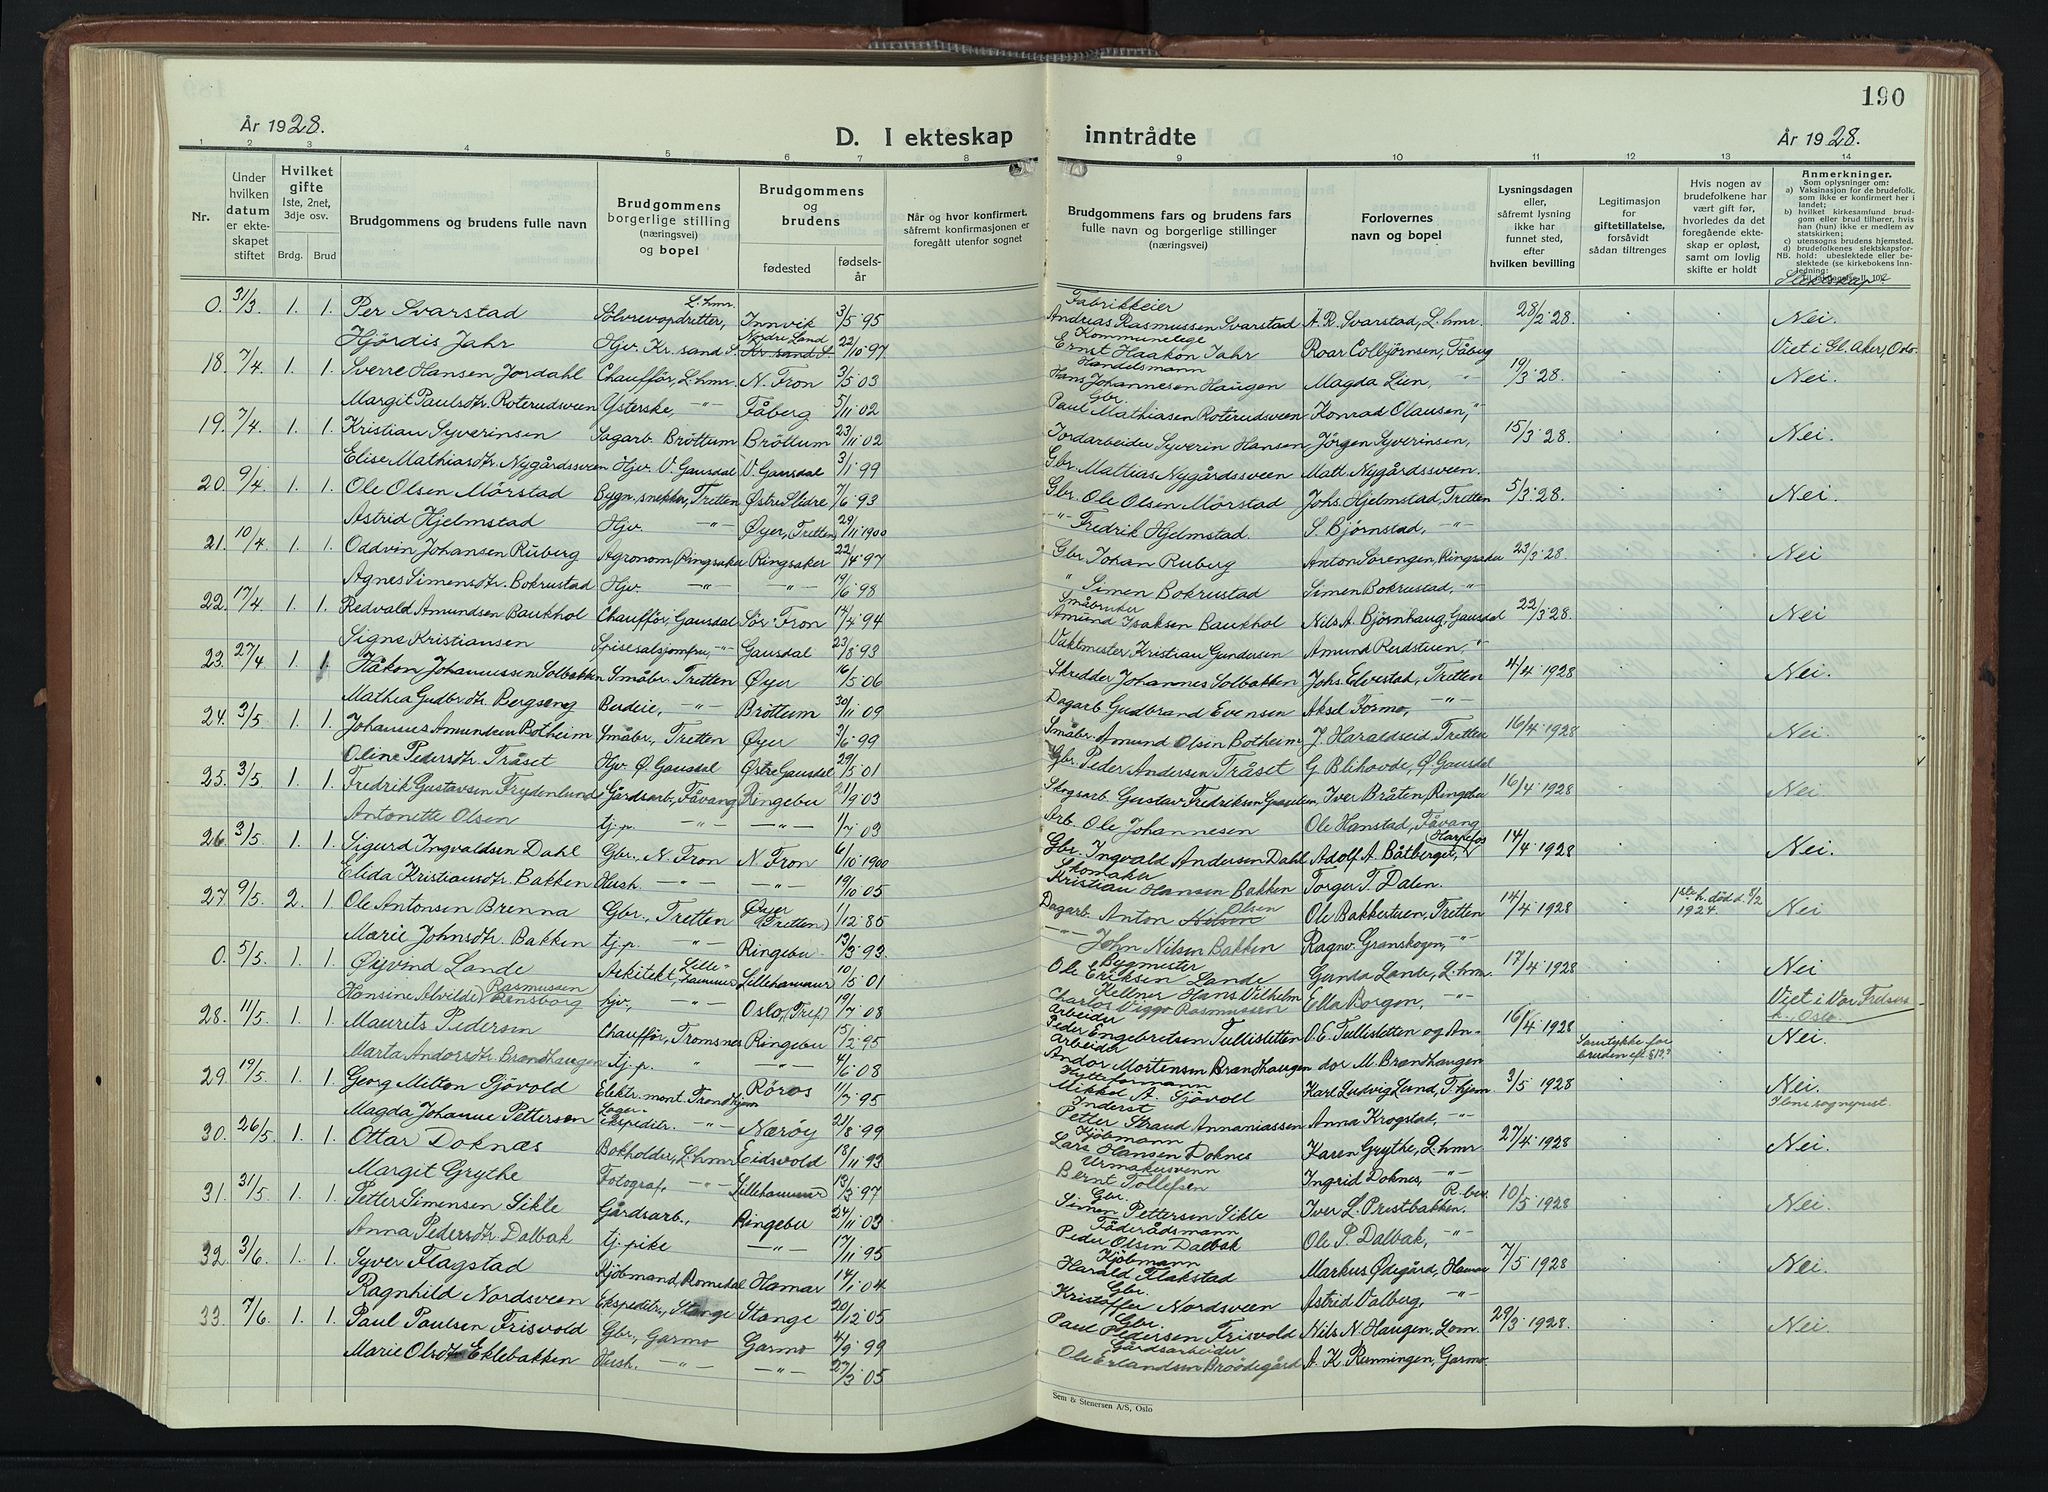 190
År 1928.
D. I ekteskap inntrådte
År 1928.
1 2 3 4 5 6 7 8 9 10 11 12 13 14
Nr.
Under hvilken datum er ekteskapet stiftet
Hvilket gifte 1ste, 2net, 3dje osv.
Brdg. Brud
Brudgommens og brudens fulle navn
Brudgommens borgerlige stilling (næringsvei) og bopel
Brudgommens og brudens
fødested
fødselsår
Når og hvor konfirmert, såfremt konfirmasjonen er foregått utenfor sognet
Brudgommens fars og brudens fars fulle navn og borgerlige stillinger (næringsvei)
Forlovernes navn og bopel
Lysningsdagen eller, såfremt lysning ikke har funnet sted, efter hvilken bevilling
Legitimasjon for giftetillatelse, forsåvidt sådan tiltrenges
Hvis nogen av brudefolkene har vært gift før, hvorledes da det foregående ekteskap er opløst, samt om lovlig skifte er holdt
Anmerkninger.
Som oplysninger om:
a) Vaksinasjon for de brudefolk, som ikke er konfirmert her i landet;
b) hvilket kirkesamfund brudgom eller brud tilhører, hvis han (hun) ikke er medlem av statskirken;
c) utensogns brudens hjemsted.
d) brudefolkenes slektskapsforhold: ubeslektede eller beslektede (se kirkebokens Innledning:
Slektskap
0. 31/3 1. 1. Per Svarstad Sölvrevopdretter, L.hmr. Innvik 3/5 95 Fabrikkeier Andreas Rasmussen Svarstad A. R. Svarstad, L.hmr. 28/2 28. Nei.
Hjördis Jahr Hjv. Kr.sand S. Nordre Land Kr.sand S 22/10 97 Kommunelege Ernst Haakon Jahr Roar Colbjörnsen, Fåberg Viet i Gl. Aker, Oslo.
18. 7/4 1. 1. Sverre Hansen Jordahl Chaufför, L.hmr. N. Fron 3/5 03 Handelsmann Hans Johannesen Haugen Magda Lien, -"- 19/3 28. Nei.
Margit Paulsdtr. Roterudsveen Ysterske, -"- Fåberg 5/11 02 Gbr. Paul Mathiasen Roterudsveen Konrad Olausen, "
19. 7/4 1. 1. Kristian Syverinsen Sagarb. Bröttum Bröttum 23/11 02 Jordarbeider Syverin Hansen Jörgen Syverinsen, 15/3 28. Nei.
Elise Mathiasdtr. Nygårdssveen Hjv. V. Gausdal V. Gausdal 3/1 99 Gbr. Mattias Nygårdssveen Matt. Nygårdssveen.
20. 9/4 1. 1. Ole Olsen Mörstad Bygn.snekker, Tretten Østre Slidre 7/6 93 Gbr. Ole Olsen Mörstad Johs. Hjelmstad, Tretten 5/3 28. Nei.
Astrid Hjelmstad Hjv. -"- Øyer, Tretten 29/11 1900 -"- Fredrik Hjelmstad. S. Björnstad, -"-
21. 10/4 1. 1. Oddvin Johansen Ruberg Agronom, Ringsaker Ringsaker 22/4 97 Gbr. Johan Ruberg Anton Sörengen, Ringsaker 23/3 28. Nei
Agnes Simensdtr. Bokrustad Hjv. -"- -"- 14/6 98 " Simen Bokrustad Simen Bokrustad, -"-
22. 17/4 1. 1. Redvald Amundsen Baukhol Chaufför, Gausdal Sör Fron 17/4 94 Småbruker Amund Isaksen Baukhol Nils A. Björnhaug, Gausdal 22/3 28. Nei
Signe Kristiansen Spisesalsjomfru, -"- Gausdal 23/8 93 Vaktmester Kristian Gundersen Amund Rerdstuen, "
23. 27/4 1. 1. Håkon Johannessen Solbakken Småbr. Tretten Øyer 16/5 06 Skredder Johannes Solbakken Johs. Elvestad, Tretten 4/4 1928 Nei.
Mathia Gudbr.dtr. Bergseng Berdeie, -"- Bröttum 30/11 09 Dagarb. Gudbrand Evensen Aksel Formo, -"-
24. 3/5 1. 1. Johannes Amundsen Botheim Småbr., Tretten Øyer 3/6 99 Småbr. Amund Olsen Botheim J. Haraldseid, Tretten 16/4 1928 Nei.
Oline Pedersdtr. Tråset Hjv. Ø. Gausdal Østre Gausdal 29/5 01 Gbr. Peder Andersen Tråset G. Blihovde, Ø. Gausdal
25. 3/5 1. 1. Fredrik Gustavsen Frydenlund Gårdsarb, Fåvang Ringebu 21/9 03 Skogsarb. Gustav Fredriksen Iver Bråten, Ringebu 16/4 1928 Nei.
Antonette Olsen tj.p. -"- -"- 1/7 03 Arb. Ole Johannesen Ole Hanstad, Fåvang
26. 3/5 1. 1. Sigurd Ingvaldsen Dahl Gbr., N. Fron N. Fron 6/10 1900 Gbr. Ingvald Andersen Dahl Adolf A. Båtberget, Harpefos 14/4 1928 Nei.
Elida Kristiansdtr. Bakken Hush. -"- -"- 19/10 05 Skomaker Kristian Hansen Bakken Torger T. Dalen.
27. 9/5 2. 1. Ole Antonsen Brenna Gbr., Tretten Øyer (Tretten) 1/12 85 Dagarb. Anton Olsen Ole Bakkestuen, Tretten 14/4 1928 1ste h. död d. 8/2 1924. Nei
Marie Johnsdtr. Bakken tj.p. -"- Ringebu 13/3 93 -"- John Nilsen Bakken Ragnv. Granskogen, -"-
0. 5/5 1. 1. Øyvind Lande Arkitekt, Lillehammer Lillehammer 10/5 01 Bygmester Ole Eriksen Lande Gunda Lande, L.hmr. 17/4 1928 Nei
Hansine Alvilde Rasmussen Rensborg hjv, -"- Oslo, (Tref.) 19/7 08 Kellner Hans Vilhelm Charlos Viggo Rasmussen Ella Borgen, -"- Viet i Vor Frelsers k., Oslo.
28. 11/5 1. 1. Maurits Pedersen Chaufför, Tromsnes Ringebu 15/2 95 Arbeider Peder Engebretsen Tullisletten O. E. Tullisletten og An- 16/4 1928 Samtykke for bruden eft. § 12? Nei.
Marta Andorsdtr. Brandhaugen tj.p. " -"- 4/6 08 Arbeider Andor Mortensen Brandhaugen dor M. Brandhaugen
29. 19/5 1. 1. Georg Milton Gjövold Elektr. mont. Trondhjem Röros 11/7 95 Hytteformann Mikal A. Gjövoll Karl Ludvig Lund, T.hjem 3/5 1928 Nei.
Magda Johanne Pettersen Lager-Ekspeditr. -"- Nærøy 21/8 99 Inderst Petter Straud Annaniassen Anna Krogstad, -"- Ilens sogneprest.
30. 26/5 1. 1. Ottar Doknæs Bokholder, L.hmr Eidsvold 18/11 93 Kjöbmann Lars Hansen Doknes Karen Grythe, L.hmr. 27/4 1928 Nei.
Margit Grythe Fotograf, -"- Lillehammer 13/3 97 Urmakersvenn Bernt Tollefsen Ingrid Doknes, -"-
31. 31/5 1. 1. Petter Simensen Sikle Gårdsarb., Ringebu 24/11 03 Gbr. Simen Pettersen Sikle Iver L. Prestbakken, R.bu. 10/5 1928 Nei.
Anna Pedersdtr. Dalbak tj.pike -"- 17/11 95 Föderådsmann Peder Olsen Dalbak Ole P. Dalbak, -"-
32. 3/6 1. 1. Syver Flagstad Kjöbmand Romedal Hamar 14/1 04 Kjöbmann Harald Flakstad Markus Ødegård, Hamar 7/5 1928 Nei.
Ragnhild Nordsveen Ekspeditr., Stange Stange 20/12 05 Gbr. Kristoffer Nordsveen Astrid Valberg, -"-
33. 7/6 1. 1. Paul Paulsen Frisvold Gbr., Garmo Garmo 4/9 99 Gbr. Paul Pedersen Frisvold Nils N. Haugen, Lom. 29/3 1928. Nei.
Marie Olsdtr. Eklebakken Hush. -"- -"- 27/3 05 Gårdsarbeider Ole Erlandsen A. K. Rønningen, Garmo.
Sem & Stenersen A/S, Oslo